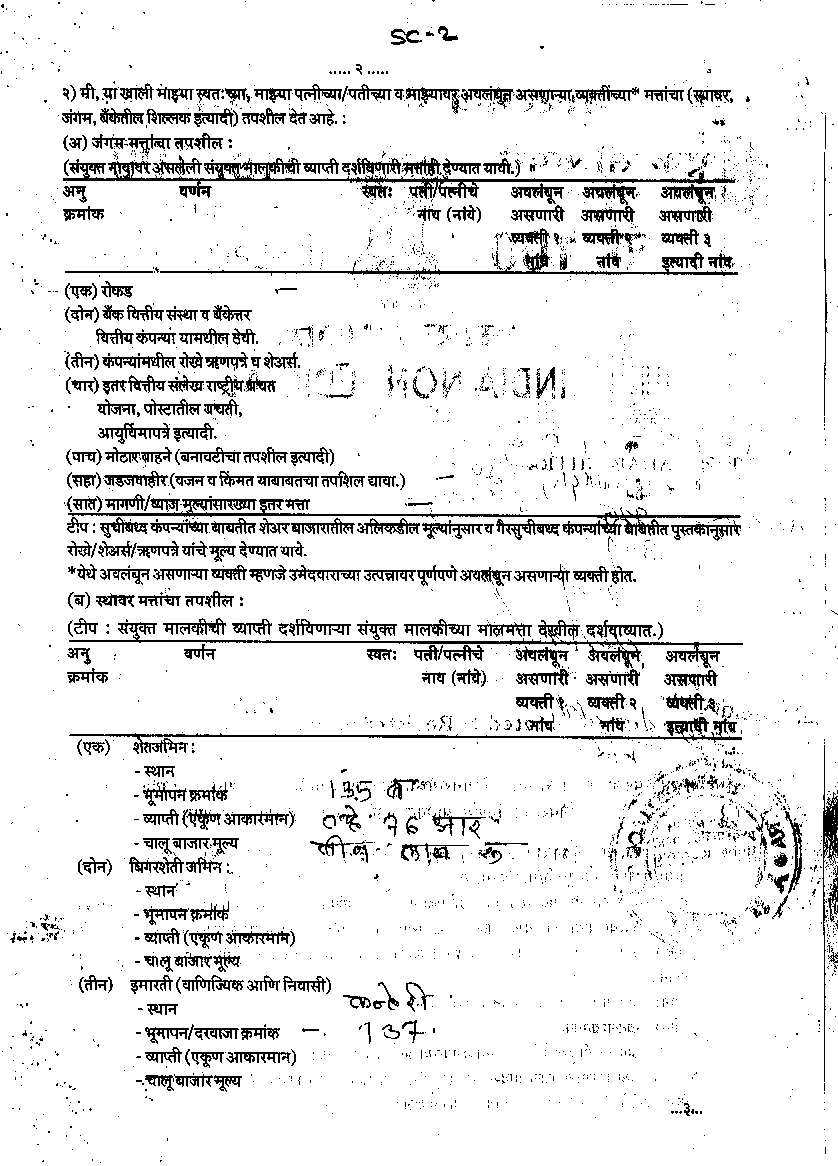 SC-2
..... २ .....
२) मी, या खाली माझ्या स्वतःच्या, माझ्या पत्नीच्या/पतीच्या व माझ्यावर अवलंबून असणाऱ्या व्यक्तींच्या* मत्तांचा (स्थावर,
जंगम, बँकेतील शिल्लक इत्यादी) तपशील देत आहे. :
(अ) जंगम मत्तांचा तपशील :
(संयुक्त नावावर असलेली संयुक्त मालकीची व्याप्ती दर्शविणारी मत्ताही देण्यात यावी.)
अनु वर्णन स्वतः पती/पत्नीचे अवलंबून अवलंबून अवलंबून
क्रमांक नांव (नांवे) असणारी असणारी असणारी
व्यक्ती १ व्यक्ती २ व्यक्ती ३
नांव नांव इत्यादी नांव
(एक) रोकड —
(दोन) बँक वित्तीय संस्था व बँकेत्तर
वित्तीय कंपन्या यामधील ठेवी.
(तीन) कंपन्यांमधील रोखे ऋणपत्रे व शेअर्स.
(चार) इतर वित्तीय संलेख राष्ट्रीय बचत
योजना, पोस्टातील बचती,
आयुर्विमापत्रे इत्यादी.
(पाच) मोटार वाहने (बनावटीचा तपशील इत्यादी)
(सहा) जडजवाहीर (वजन व किंमत याबाबतचा तपशिल द्यावा.) —
(सात) मागणी/व्याज मूल्यांसारख्या इतर मत्ता —
टीप : सुचीबध्द कंपन्यांच्या बाबतीत शेअर बाजारातील अलिकडील मूल्यांनुसार व गैरसुचीबध्द कंपन्यांच्या बाबतीत पुस्तकानुसार
रोखे/शेअर्स/ऋणपत्रे यांचे मूल्य देण्यात यावे.
*येथे अवलंबून असणाऱ्या व्यक्ती म्हणजे उमेदवाराच्या उत्पन्नावर पूर्णपणे अवलंबून असणाऱ्या व्यक्ती होत.
(ब) स्थावर मत्तांचा तपशील :
(टीप : संयुक्त मालकीची व्याप्ती दर्शविणाऱ्या संयुक्त मालकीच्या मालमत्ता देखील दर्शवाव्यात.)
अनु वर्णन स्वतः पती/पत्नीचे अवलंबून अवलंबून अवलंबून
क्रमांक नाव (नांवे) असणारी असणारी असणारी
व्यक्ती १ व्यक्ती २ व्यक्ती ३
नांव नांव इत्यादी नांव
(एक) शेतजमिन :
- स्थान
- भूमापन क्रमांक 135
- व्याप्ती (एकूण आकारमान) 76 आर
- चालू बाजार मूल्य लाख रु
(दोन) बिगरशेती जमिन :
- स्थान
- भूमापन क्रमांक
- व्याप्ती (एकूण आकारमान)
- चालू बाजार मूल्य
(तीन) इमारती (वाणिज्यिक आणि निवासी)
- स्थान कन्हेरी
- भूमापन/दरवाजा क्रमांक — 137.
- व्याप्ती (एकूण आकारमान)
- चालू बाजार मूल्य
...३...